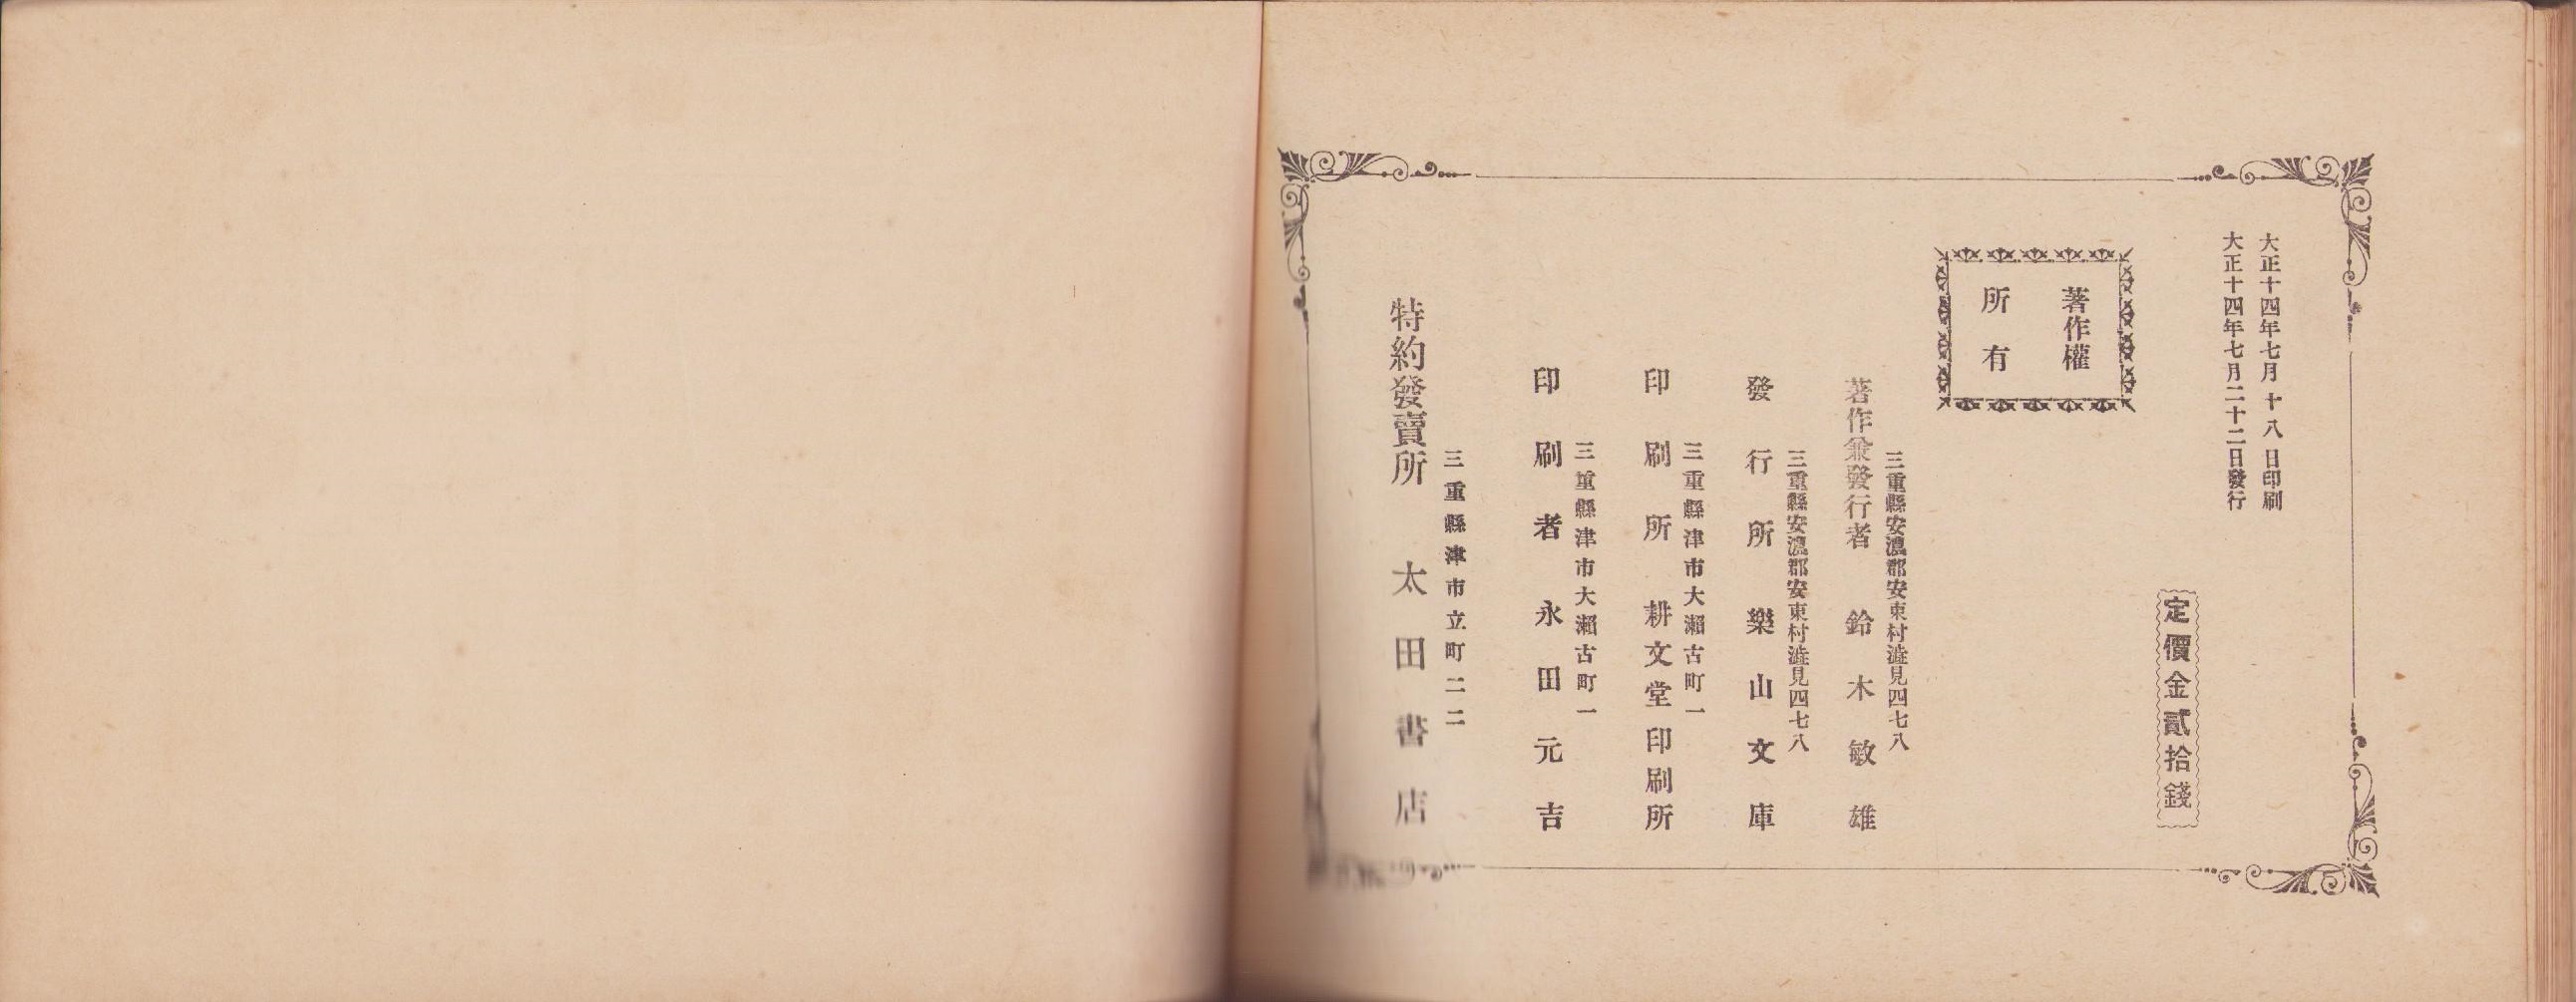 大正十四年七月十八日印刷
大正十四年七月二十二日發行
定價金貳拾錢
著作權
所有
三重縣安濃郡安東村澁見四七八
著作兼發行者 鈴木敏雄
三重縣安濃郡安東村澁見四七八
發行所 樂山文庫
三重縣津市大瀨古町一
印刷所 耕文堂印刷所
三重縣津市大瀨古町一
印刷者 永田元吉
三重縣津市立町二二
特約發賣所 太田書店